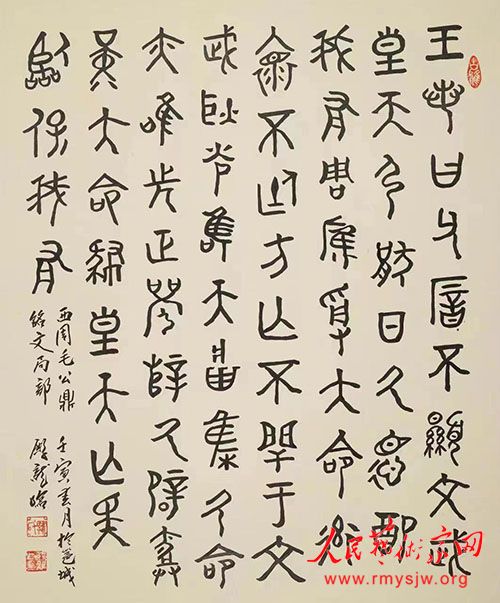 王若曰父厝不顯文武
皇天弘猒氒德配
我有周膺受大命率
褱不廷方亡不閈于文
武耿光唯天甾集氒命
亦唯先正辥氒
堇大命肆皇天亡斁
臨保我有
西周毛公鼎
銘文局部
壬寅春月於邕城
龍臨
人民藝術家网
www.rmysjw.org